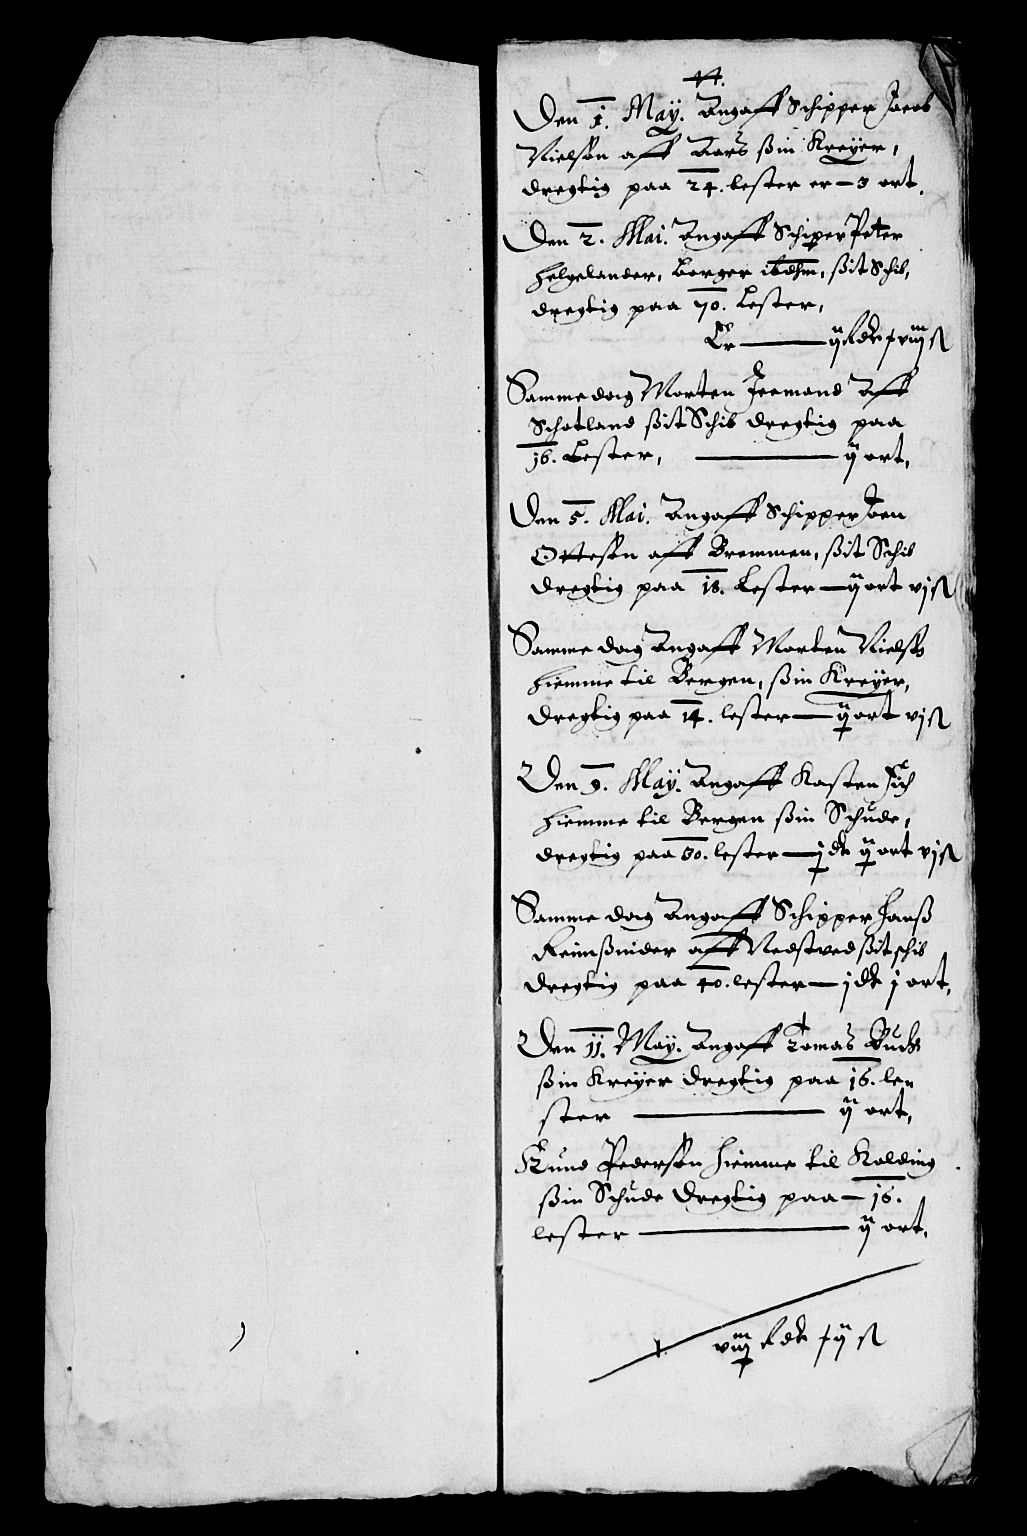 14.
Den 1. Maÿ. Angaff Schipper Jacob
Nielsøn aff Aars ßin Kreÿer,
dregtig paa 24. lester er – 3 ort.
Den 2. Mai. Angaff Schiper Peter
helgelander, borger ßit Schib,
dregtig paa 70. Lester,
Er ——— ij Rdr viij ß
Samme dag Morten Jermand Aff
Schotland ßit Schib dregtig paa
16. Lester, ——— ij ort,
Den 5. Mai. Angaff Schipper Joen
Ottesøn aff Bremmen, ßit Schib
dregtig paa 18. Lester — ij ort vj ß
Samme dag Angaff Morten Nielsøn
hiemme til Bergen, ßin Kreÿer,
dregtig paa 14. lester — ij ort vj ß
Den 9. Maÿ. Angaff Kasten
hiemme til Bergen ßin Schude,
dregtig paa 50. lester — j dr ij ort vj ß
Samme dag Angaff Schipper hanß
Reimßnider aff Nedstved ßit schib
dregtig paa 40. lester — j dr j ort,
Den 11. Maÿ. Angaff Tomas Buch
ßin Kreÿer dregtig paa 16. le-
ster ——— ij ort,
Knud Pedersøn hiemme til Kolding
ßin Schude dregtig paa — 16.
lester ——— ij ort,
viij Rdr ij ß